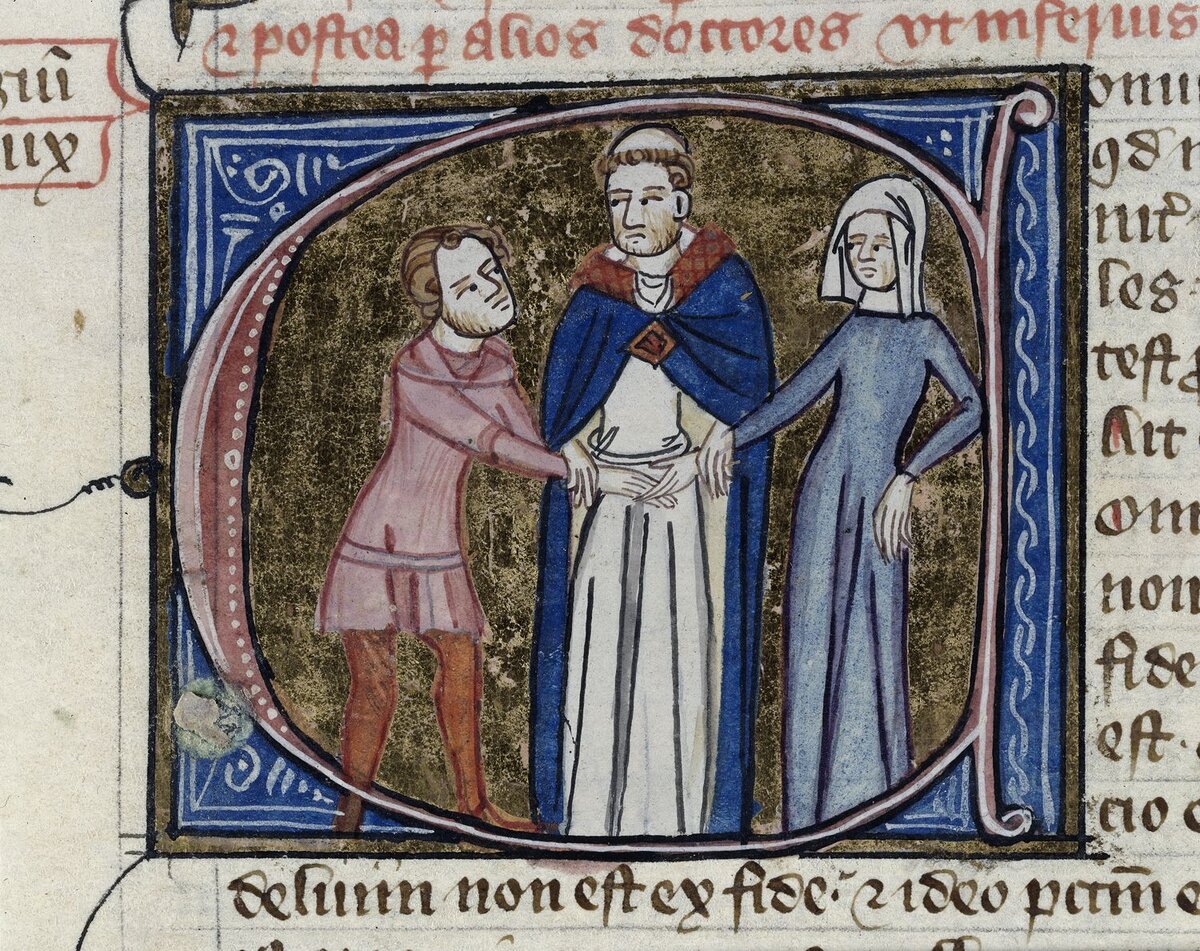 ⁊ postea ꝑ alios doctores vt inferius
giū
iux
C
oniu
les
test
Ait
om
non
fide
est.
cio
deliuin non est ex fide. ⁊ ideo pctm̄ e